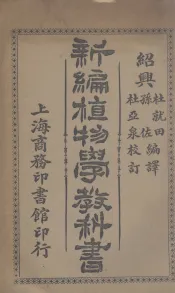 紹興
杜就田
孫佐編譯
杜亞泉校訂
新編植物學教科書
上海商務印書館印行